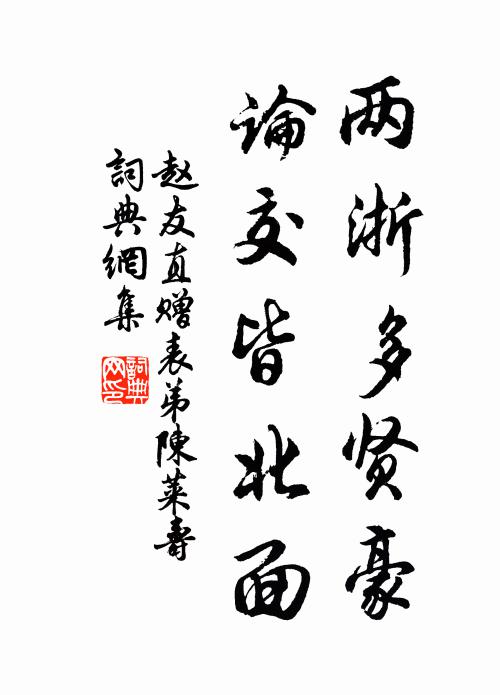 两浙多贤豪
论交皆北面
赵友直赠表弟陳莱壽
詞典網集
詞典网印